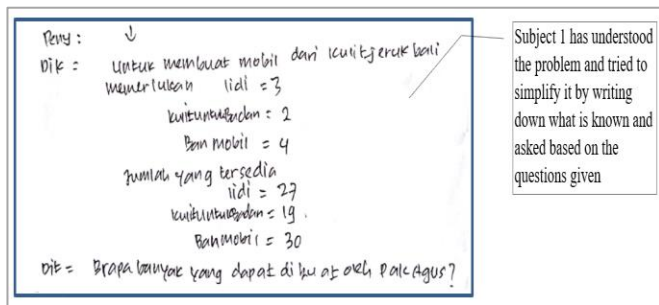 Peny :
Dik = Untuk membuat mobil dari kulit jeruk bali
memerlukan lidi = 3
kulit untuk badan = 2
Ban mobil = 4
Jumlah yang tersedia
lidi = 27
kulit untuk badan = 19.
Ban mobil = 30
Dit = Brapa banyak yang dapat di buat oleh Pak Agus?
Subject 1 has understood
the problem and tried to
simplify it by writing
down what is known and
asked based on the
questions given